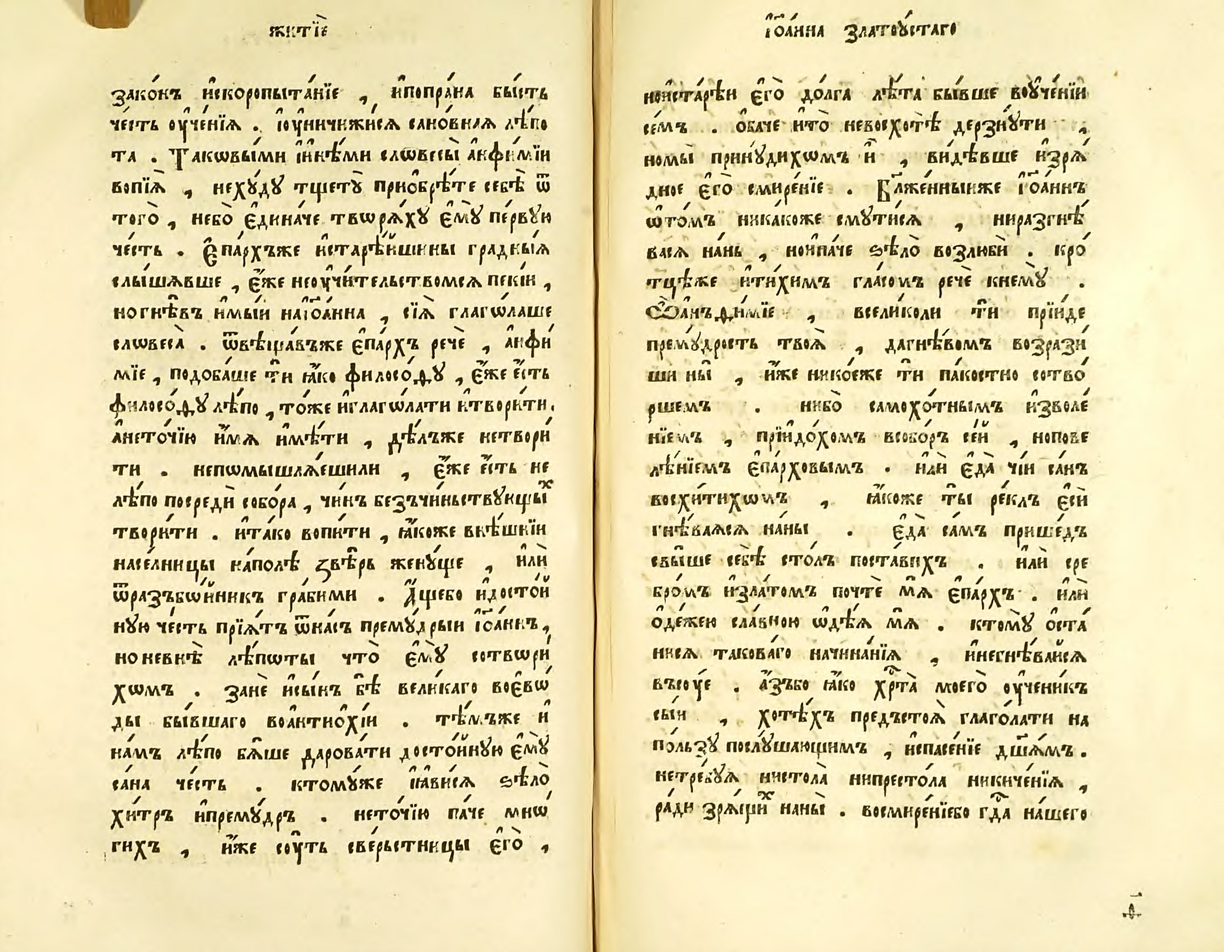 житїѐ
зако́нъ и҆скоропыта́нїе , и҆попра̀на бы́сть
че́сть ᲂу҆че́нїѧ . і҆ᲂу҆ничижи́сѧ сано́внаѧ лѣ́по
та . Таковы́ми и҆и҆нѣ́ми словесы̀ а҆нфи́мїи
вопїѧ̀ , нехꙋ́дꙋ тщетꙋ̀ прїѡбрѣ́те себѣ̀ ѿ
того̀ , не́бо є҆дина́че творѧ́хꙋ є҆мꙋ̀ пе́рвꙋю
че́сть . Є҆па́рхъже и҆старѣ́йшины гра́дныѧ
слы́шѧвше , є҆́же неᲂу҆чи́тельствомсѧ пекі́и ,
ногнѣ́въ и҆мы́и наїѡа́нна , сїѧ̀ глаго́лаше
словеса̀ . ѿвѣща́въже є҆па́рхъ речѐ , а҆нфи
мїе , подоба́ше тѝ ꙗ҆́ко филосо́фꙋ , є҆́же є҆́сть
филосо́фꙋ лѣ́по , то́же и҆глаго́лати и҆твори́ти .
а҆нето́чїю и҆́мѧ и҆мѣ́ти , дѣ́лъже нетвори́
ти . непомышлѧ́ешили , є҆́же є҆́сть не
лѣ́по посредѝ собо́ра , чи́нъ безъчи́ньствꙋющыⷯ
твори́ти . и҆та́ко вопи́ти , ꙗ҆́коже внѣ́шнїи
насе́лницы на́полѣ̀ ѕвѣ́рь женꙋ́ще , и҆лѝ
ѿразъбо́йникъ гра́бими . А҆́щебо и҆досто́й
нꙋю че́сть прїѧ́тъ ѿна́съ премꙋ́дрыи і҆ѡа́ннъ ,
ноневнѣ̀ лѣ́поты что̀ є҆мꙋ̀ сотвори́
хомъ . занѐ и҆сы́нъ бѣ̀ вели́каго воево́
ды бы́вшаго воа҆нтиохі́и . тѣ́мъже и҆
на́мъ лѣ́по бѧ́ше дарова́ти досто́йнꙋю є҆мꙋ̀
са́на че́сть . ктомꙋ́же ꙗ҆ви́сѧ ѕѣло̀
хи́тръ и҆премꙋ́дръ . нето́чїю па́че мно́
гихъ , и҆́же сꙋ́ть све́рьстницы є҆го̀ ,
І҆ѡа́нна златоꙋ́стаго
ноистарѣ́и є҆го̀ до́лга лѣ́та бы́вше воᲂу҆че́нїи
се́мъ . ѻ҆ба́че нито̀ невосхотѣ̀ дерзнꙋ́ти ,
номы̀ принꙋ́дихомъ и҆̀ , ви́дѣвше и҆зрѧ́
дное є҆го̀ смире́нїе . Бл҃же́нныиже і҆ѡа́ннъ
ѡ҆то́мъ ника́коже смꙋти́сѧ , ниразгнѣ́
васѧ на́нь , нои҆па́че ѕѣло̀ возлюбѝ . кро́
тцѣже и҆ти́химъ гла́сомъ речѐ кнемꙋ̀ .
Ѽ а҆нъфи́мїе , вселико́ли тѝ прїи́де
премꙋ́дрость твоѧ̀ , дагнѣ́вомъ возрази́
ши ны̀ , и҆́же нико́еже тѝ па́костно сотво́
ршемъ . ни́бо самохо́тнымъ и҆зволе́
нїемъ , прїидо́хомъ всобо́ръ се́й , нопове
лѣ́нїемъ є҆па́рховымъ . и҆лѝ є҆да̀ чі́и са́нъ
восхи́тихомъ , ꙗ҆́коже ты̀ ре́клъ є҆сѝ
гнѣ́ваѧсѧ наны̀ . є҆да̀ са́мъ прише́дъ
свы́ше себѣ̀ сто́лъ поста́вихъ . и҆лѝ сре
бро́мъ и҆зла́томъ почте́ мѧ̀ є҆па́рхъ . и҆лѝ
ѻ҆де́жею сла́вною ѡ҆дѣ́ѧ мѧ̀ . ктомꙋ̀ ѻ҆ста́
нисѧ такова́го начина́нїѧ , и҆негнѣ́вайсѧ
въсꙋ́е . а҆́зъбо ꙗ҆́ко хрⷭ҇та̀ моего̀ ᲂу҆чени́къ
сы́и , хотѣ́хъ предъстоѧ̀ глаго́лати на
по́льзꙋ послꙋ́шающимъ , и҆спасе́нїе дш҃а́мъ .
нетре́бꙋѧ нистола̀ нипресто́ла никиче́нїѧ ,
ра́ди зрѧ́щиⷯ наны̀ . восмире́нїебо гдⷭ҇а на́шего